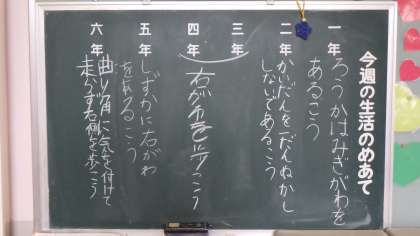 今週の生活のめあて
一年 ろうかはみぎがわを
あるこう
二年 かいだんを一だんぬかし
しないであるこう
三年
四年 右がわを歩こう
五年 しずかに右がわ
をあるこう
六年 曲り角に気を付けて
走らず右側を歩こう